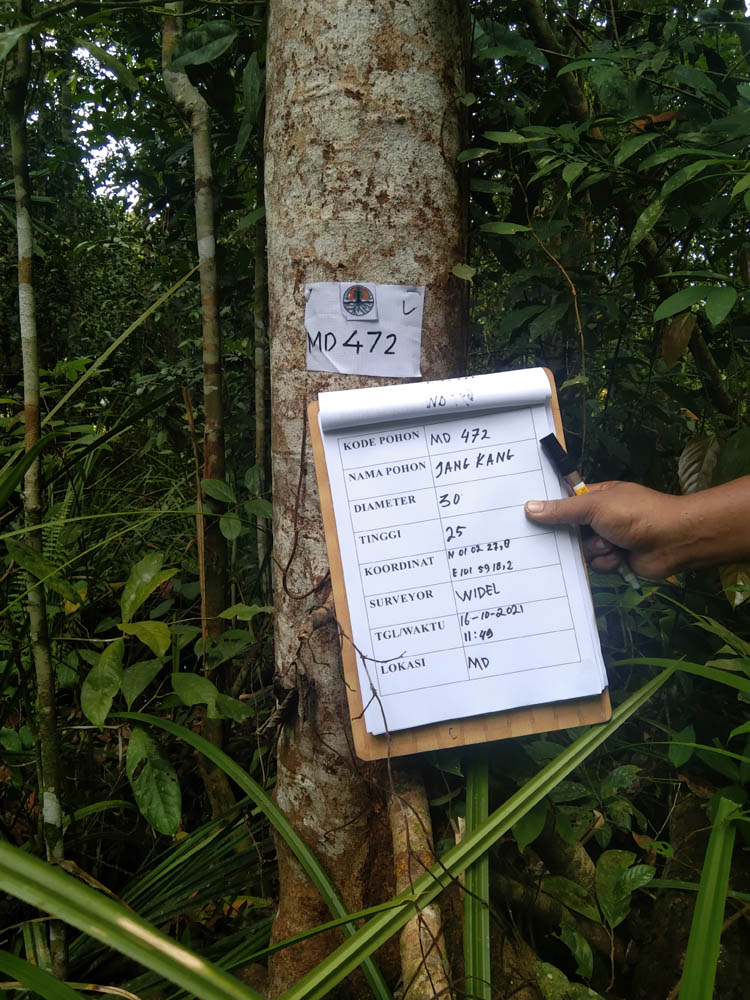 MD 472
KODE POHON MD 472
NAMA POHON JANG KANG
DIAMETER 30
TINGGI 25
KOORDINAT N 01 02 27,8
E 101 59 18,2
SURVEYOR WIDEL
TGL/WAKTU 16-10-2021
11:49
LOKASI MD